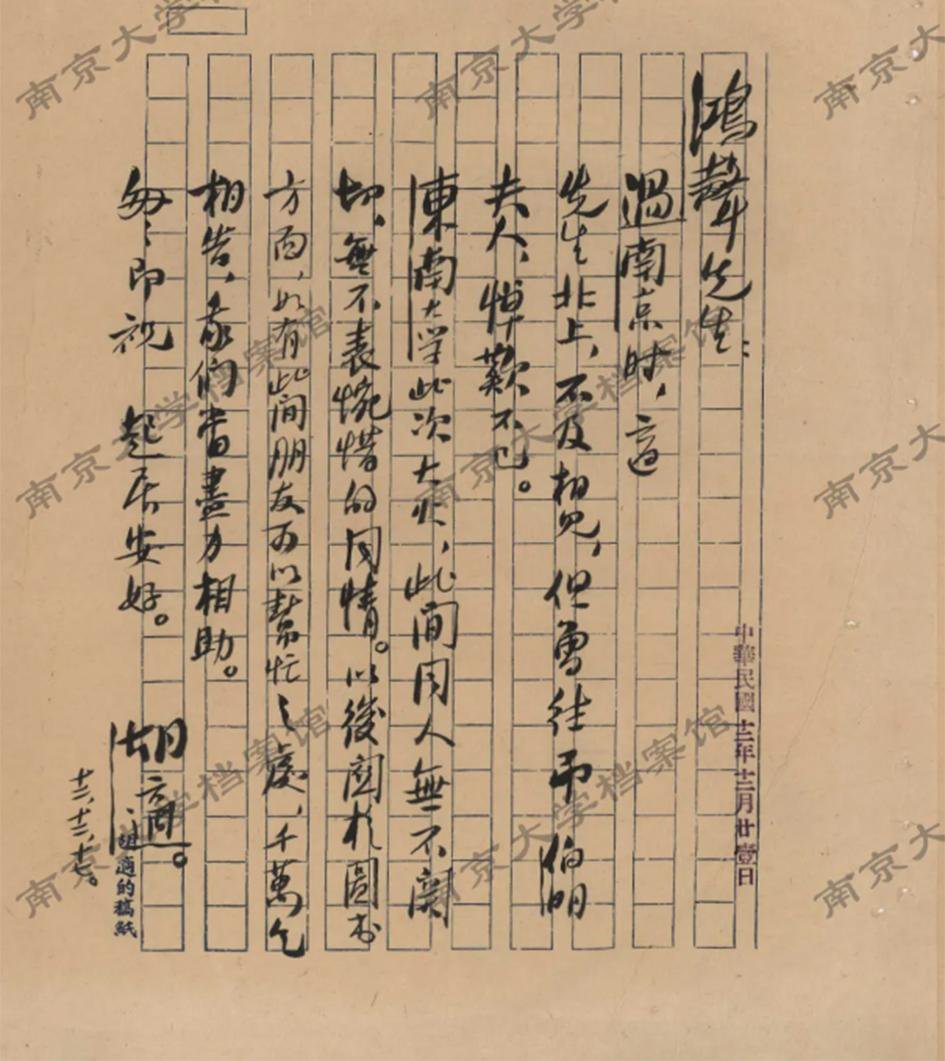 鴻聲先生：
過南京時，適
先生北上，不及相見，但曾往弔伯明
夫人，悼歎不已。
東南大学此次大火，此間同人無不関
切，無不表惋惜的同情。以後関於圖书
方面，如有此間朋友可以幫忙之處，千萬乞
相告，我們當盡力相助。
匆匆即祝 起居安好。
胡適。
十二，十二，十七。
胡適的稿紙
中華民國十二年十二月廿壹日
南京大学档案馆